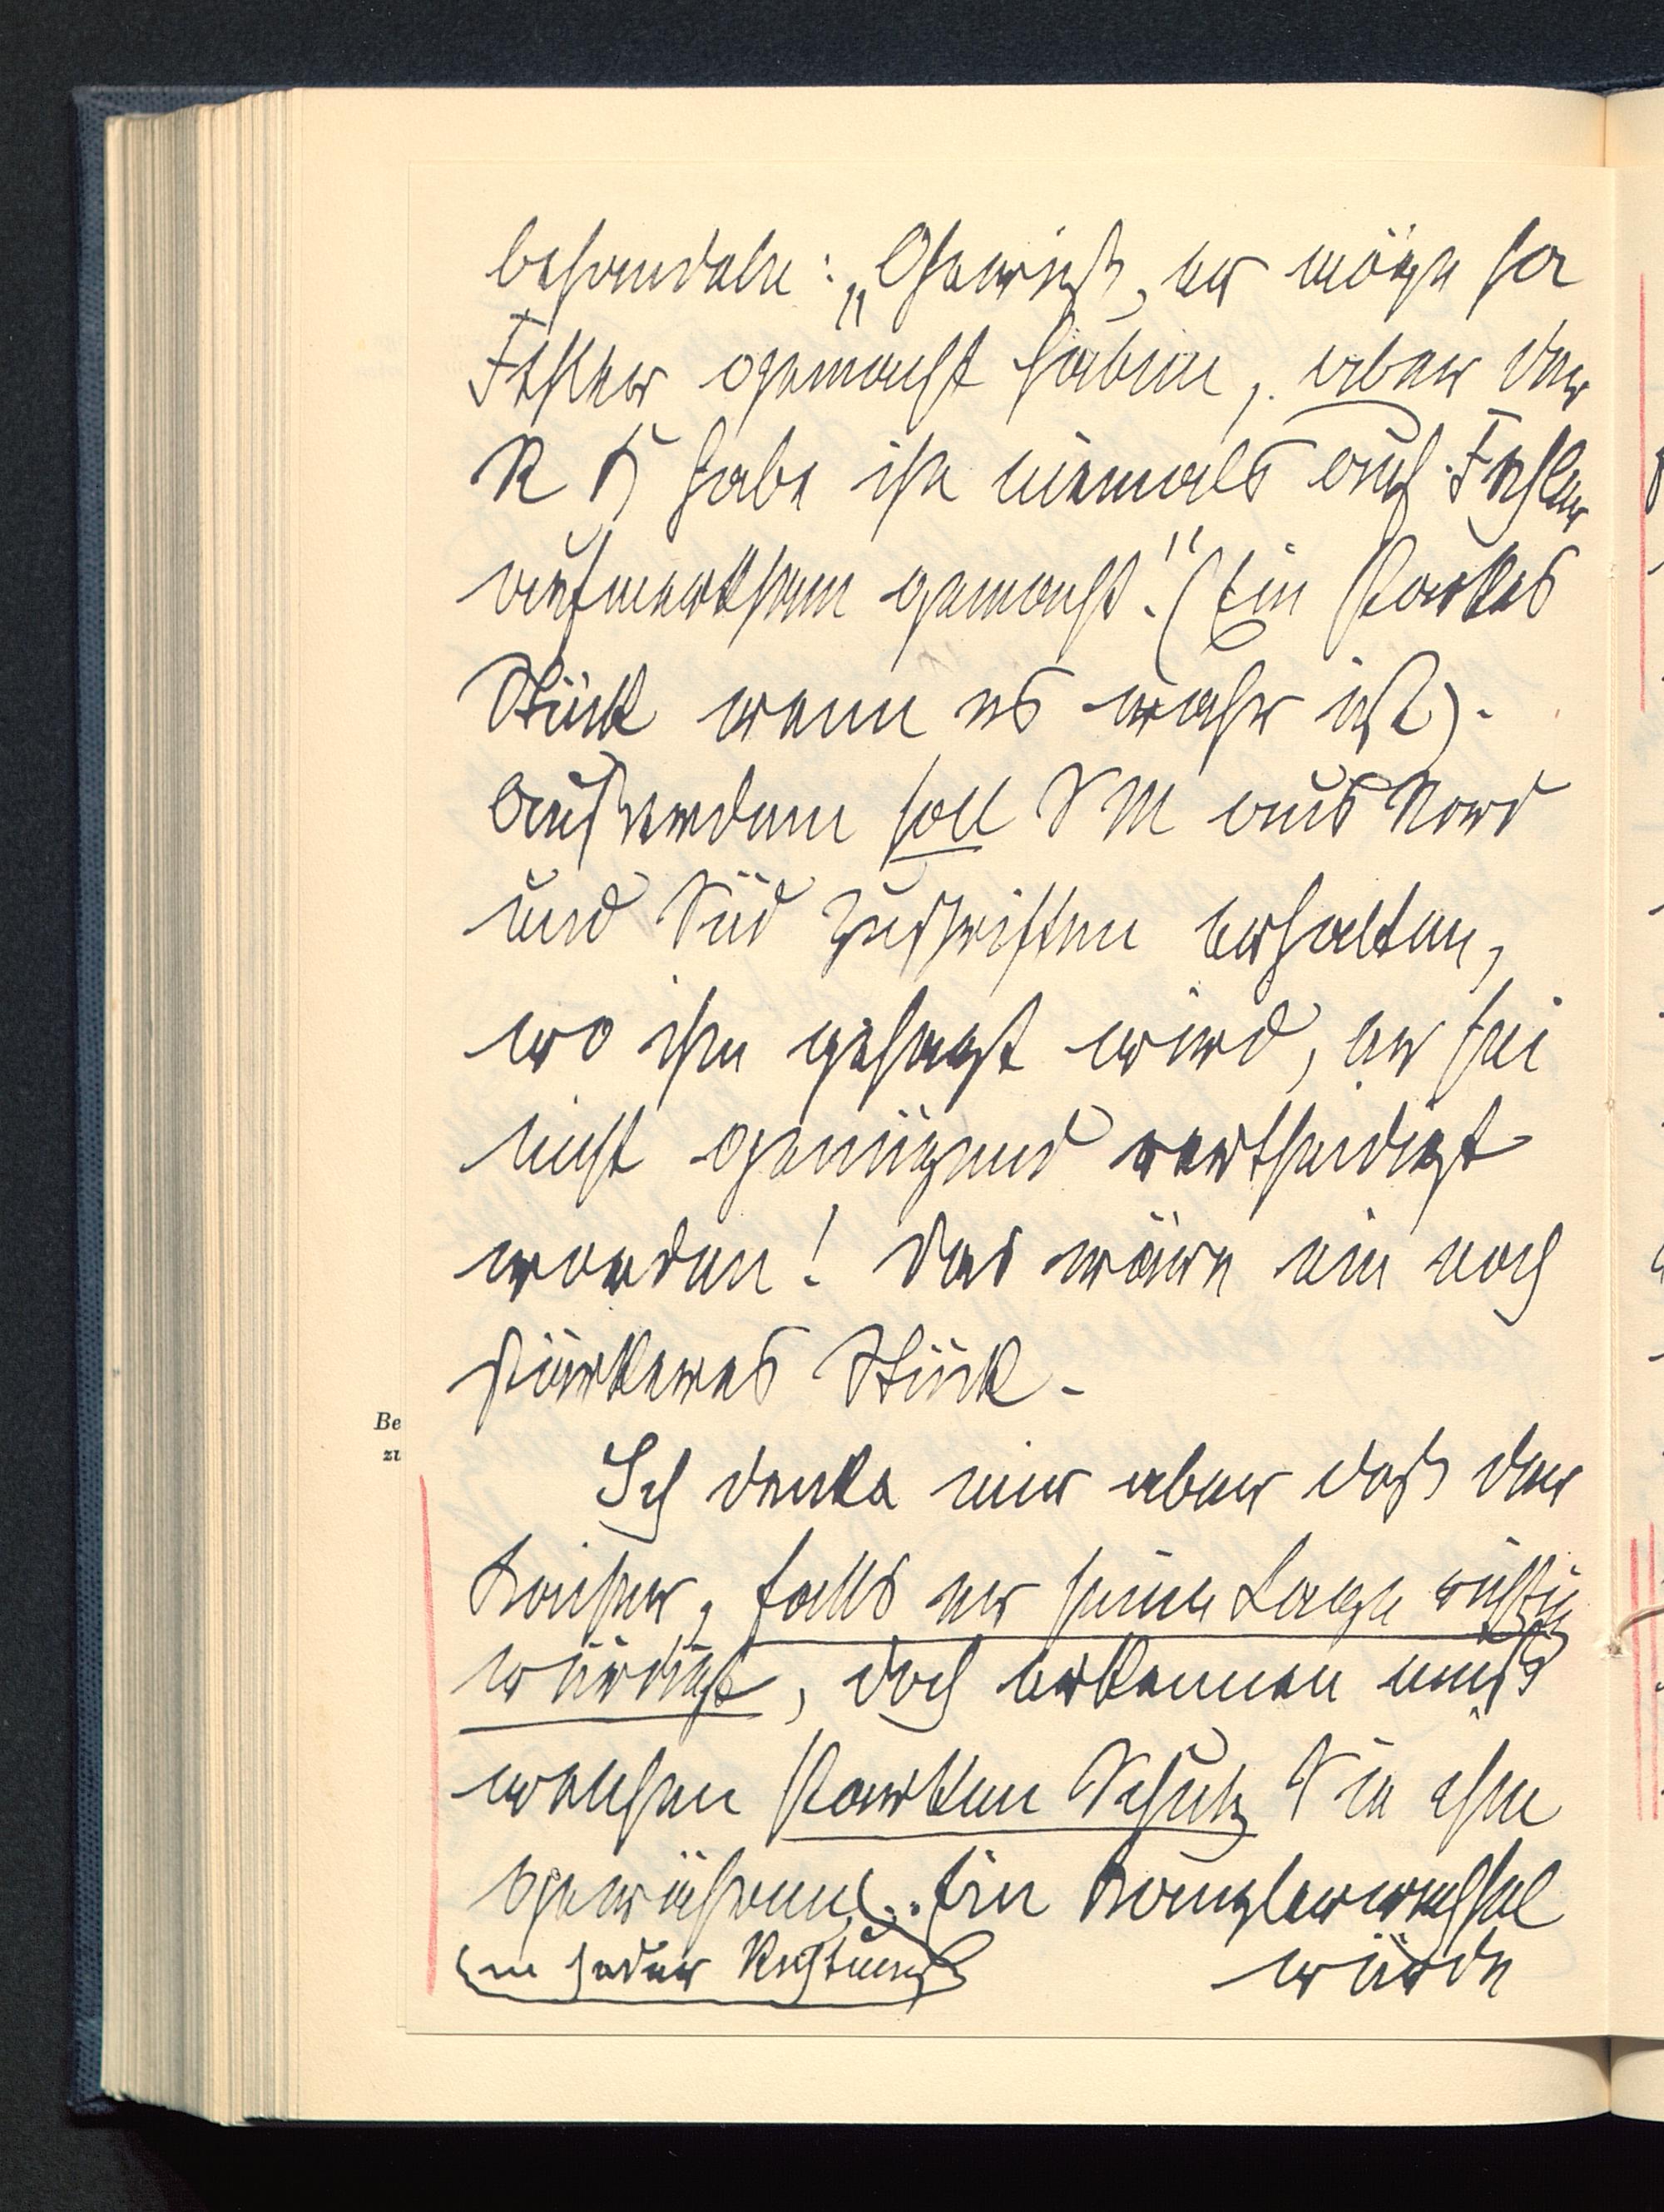 behandeln: „Gewiß, er möge ja
Fehler gemacht haben, aber der
R K habe ihn niemals auf Fehler
aufmerksam gemacht." (Ein starkes
Stück wenn es wahr ist).
Außerdem soll S M aus Nord
und Süd Zuschriften erhalten,
wo ihm gesagt wird, er sei
nicht genügend vertheidigt
worden! Das wäre ein noch
stärkeres Stück.
Be
zu
Ich denke mir aber daß der
Kaiser, falls er seine Lage richtig
würdigt, doch erkennen muß
welchen starken Schutz Sie ihm
gewähren. Ein Kanzlerwechsel
in jeder Richtung
würde